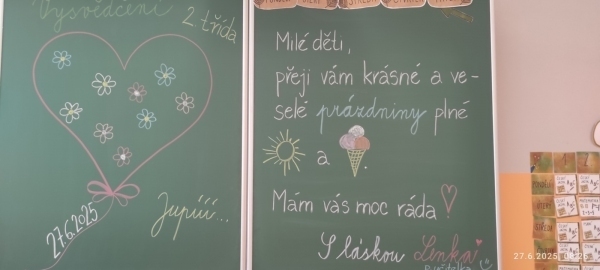 Vysvědčení
2. třída
27.6.2025
Jupííí..
Milé děti,
přeji vám krásné a ve-
selé prázdniny plné
a .
Mám vás moc ráda
S láskou Lenka
STŘEDA
27.6.2025